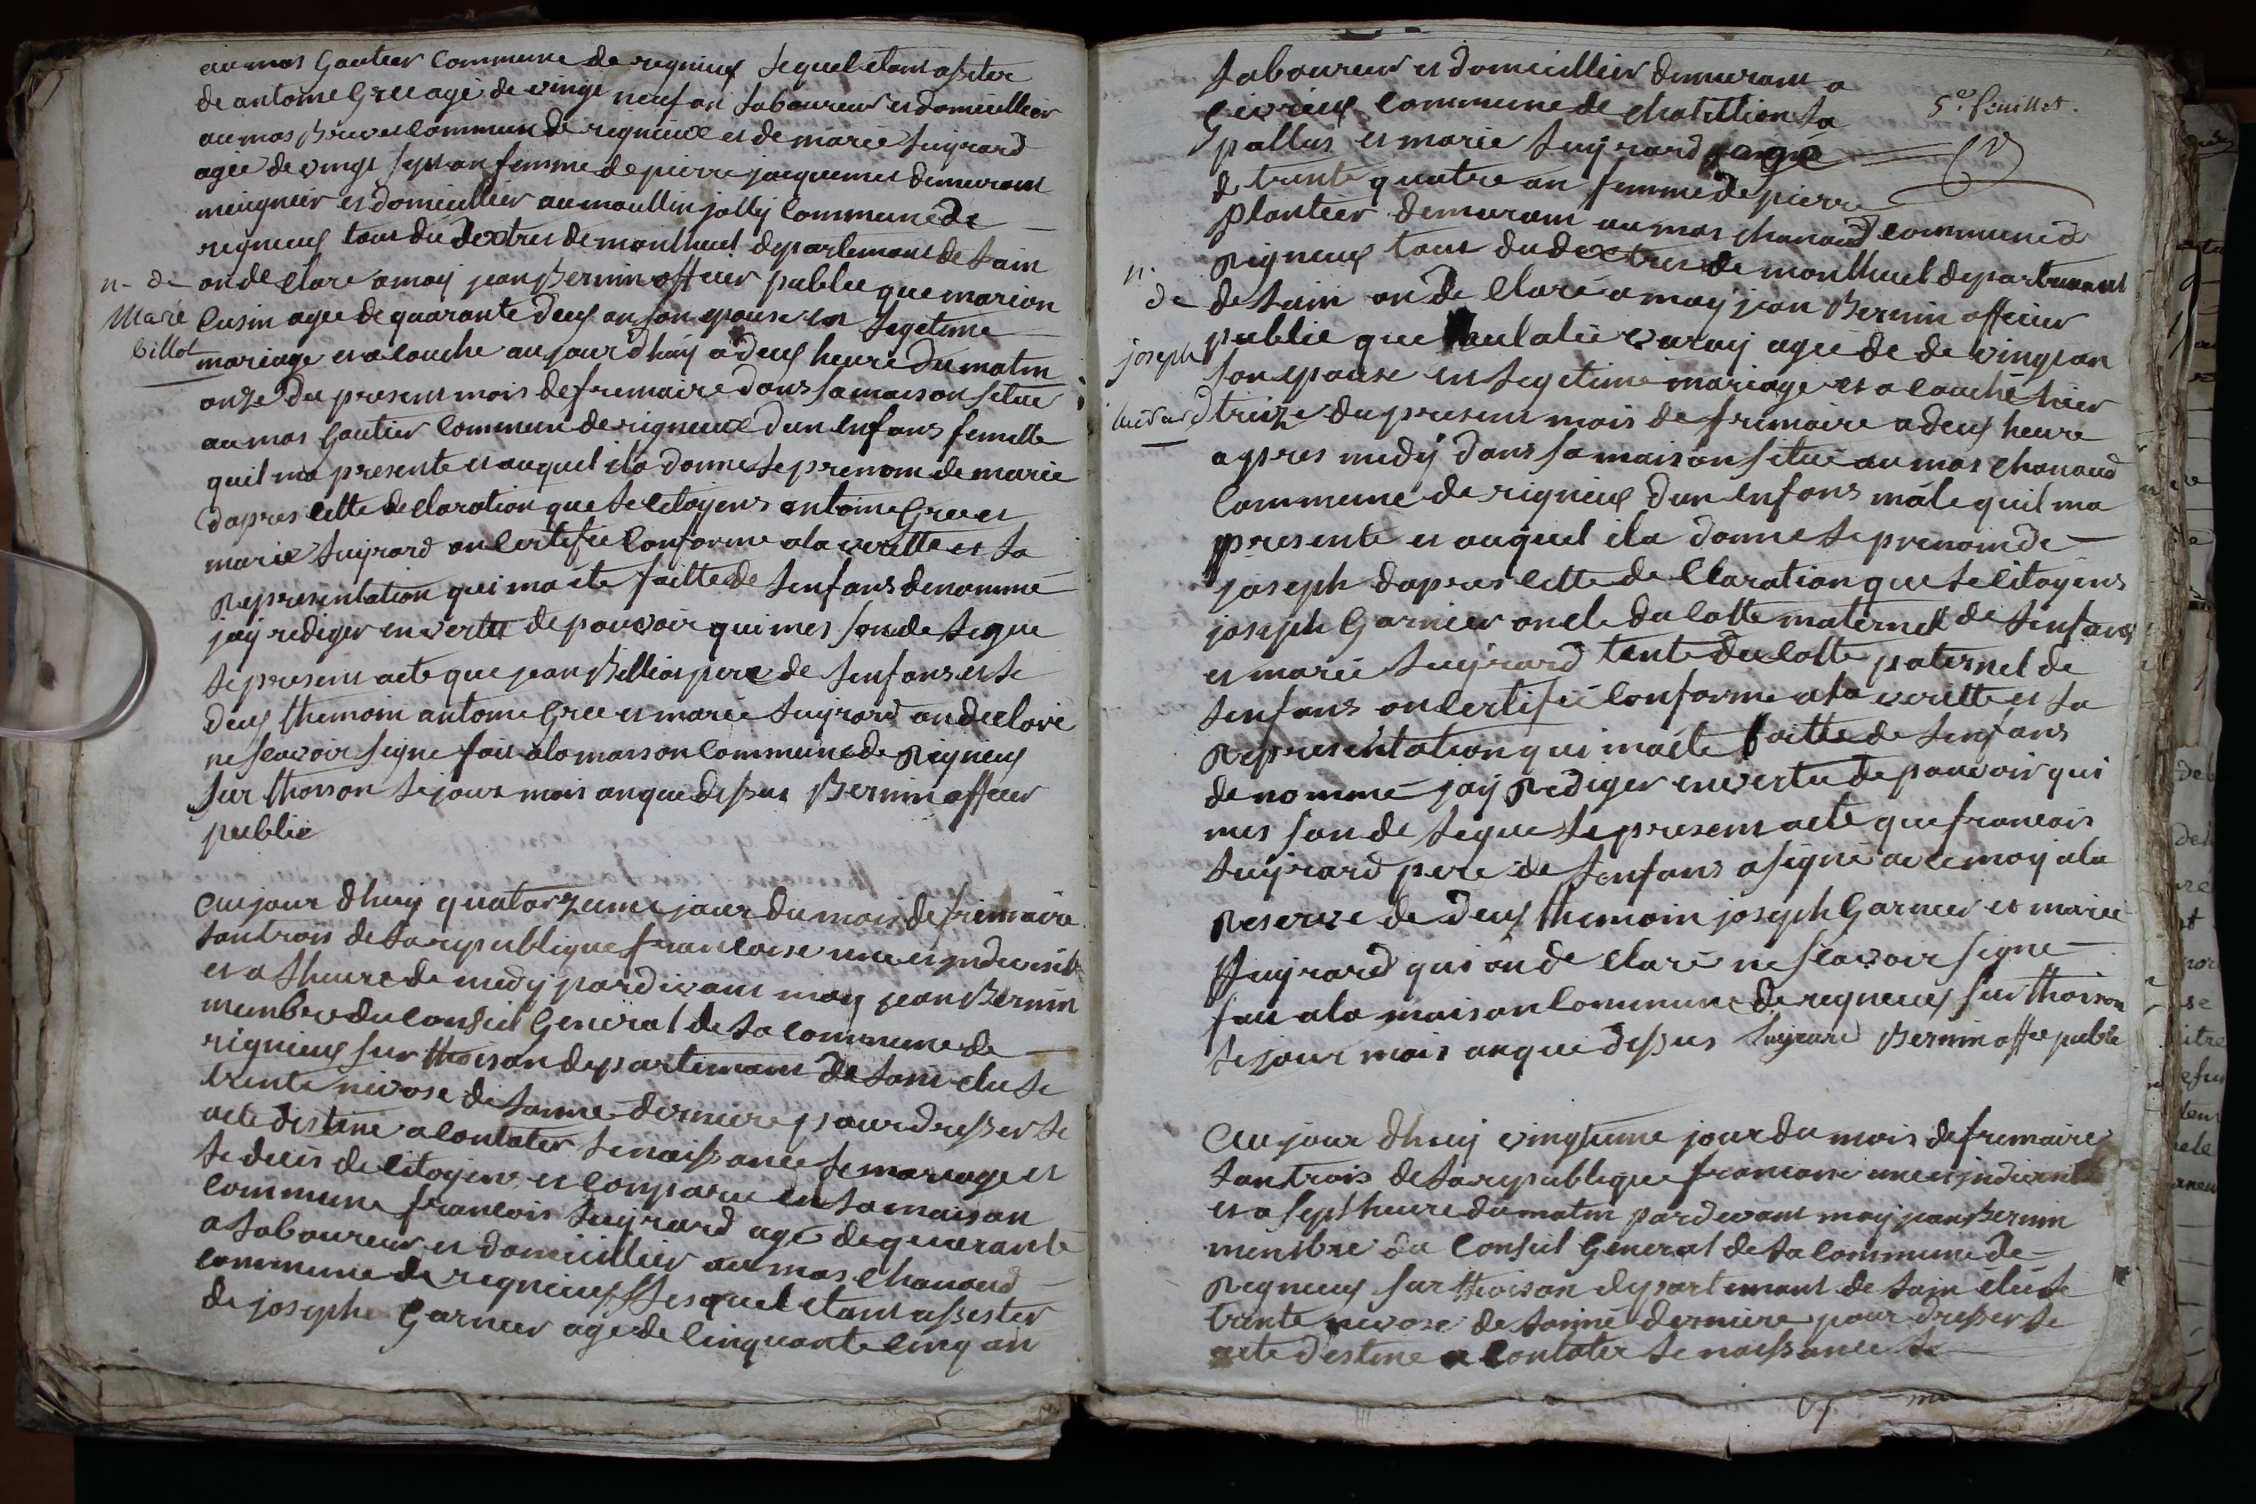 au mas Gautier Commune de rignieux lequel etant assiter
de antoine Gree age de vingt neuf an laboureur et domicillier
au mas Brevet Commun de rignieux et de marie luyrard
agee de vingt sept an femme de pierre jacquemet demeurant
meugnier et domicillier au moullin jolly Commune de
rigneux tous du dextres de montluel departemant de lain
on de Clare a moy jean Bernin officier public que marion
Cusin agee de quarante deux an son epouse en legetime
mariage et acouche aujourdhuy a deux heure du matin
onze du present mois de frimaire dans sa maison situé
au mas Gautier Commun de rigneux dun Enfans femelle
quil ma presente et auquel ila donne le prenom de marie
dapres Cette declaration que le Citoyens antoine Gree et
marie luyrard on Certifie Conforme a la veritte et la
Representation qui ma ete faitte de lenfans denommé
jay rediger en vertu de pouvoir qui mes sonde legue
le present acte que jean Billion pere de lenfans et le
deux themoin antoine Gree et marie luyrard on declare
ne scavoir signe fait a la maison Commune de Rigneux
sur thoison le jour mois an que dessus Bernin officier
public
n. de
Marie
billot
Aujourdhuy quatorzieme jour du mois de frimaire
lan trois de la republique francoise une et indivisible
et a lheure de midy pardevant moy jean Bernin
membre du Conseil General de la Commune de
rignieux sur thoison departemant de lain elu le
trente nivose de lanne derniere pour dresser le
acte destine a Contater le naissance le mariage et
le deces de Citoyens et Conparu en la maison
Commune francois luyrard age de quarante
a laboureur et domicillier au mas Chanaud
Commune de rignieux lesquel etant assister
de joseph Garnier age de Cinquante Cinq an
5e feuillet.
laboureur et domicillier demeurant a
Givrieux Commune de Chatillion la
pallus et marie luyrard age
de trente quatre an femme de pierre
plantier demeurant au mas Chanaud Commune de
Rigneux tous du dextres de montluel departemant
de lain on de Clare a moy jean Bernin officier
public que Eulalie varay agee de de vingt an
son epouse en legetime mariage et a couché hier
treize du present mois de frimaire a deux heure
apres midy dans sa maison situe au mas Chanaud
Commune de rigneux dun Enfans male quil ma
presente et auquel ila donne le prenom de
joseph dapres Cette de Claration que le Citoyens
joseph Garnier oncle du Cotte maternel de lenfans
et marie luyrard tente du Cotte paternel de
lenfans on Certifie Conforme a la veritte et la
Representation qui ma ete faitte de lenfans
de nommé jay Rediger en vertu de pouvoir qui
mes son de legue le present acte que francois
luyrard pere de lenfans a signé avec moy a la
Reserve de deux themoin joseph Garnier et marie
luyrard qui on de Clare ne scavoir signe
fait a la maison Commune de rigneux sur thoison
le jour mois an que dessus luyrard Bernin offe public
n.
de
joseph
Aujourdhuy vingtieme jour du mois de frimaire
lan trois de la republique francoise une et indivisible
et a sept heure du matin pardevant moy jean Bernin
membre du Conseil General de la Commune de
Rigneux sur thoison departemant de lain elu le
trente nivose de lanne derniere pour dresser le
acte destine a Contater le naissance le